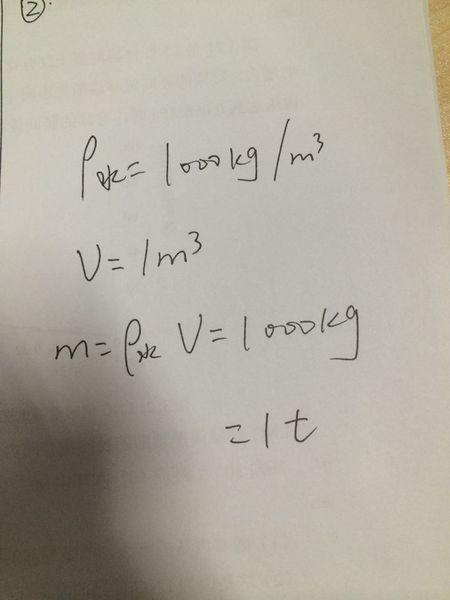 ②.
ρ水=1000kg/m³
V=1m³
m=ρ水V=1000kg
=1t